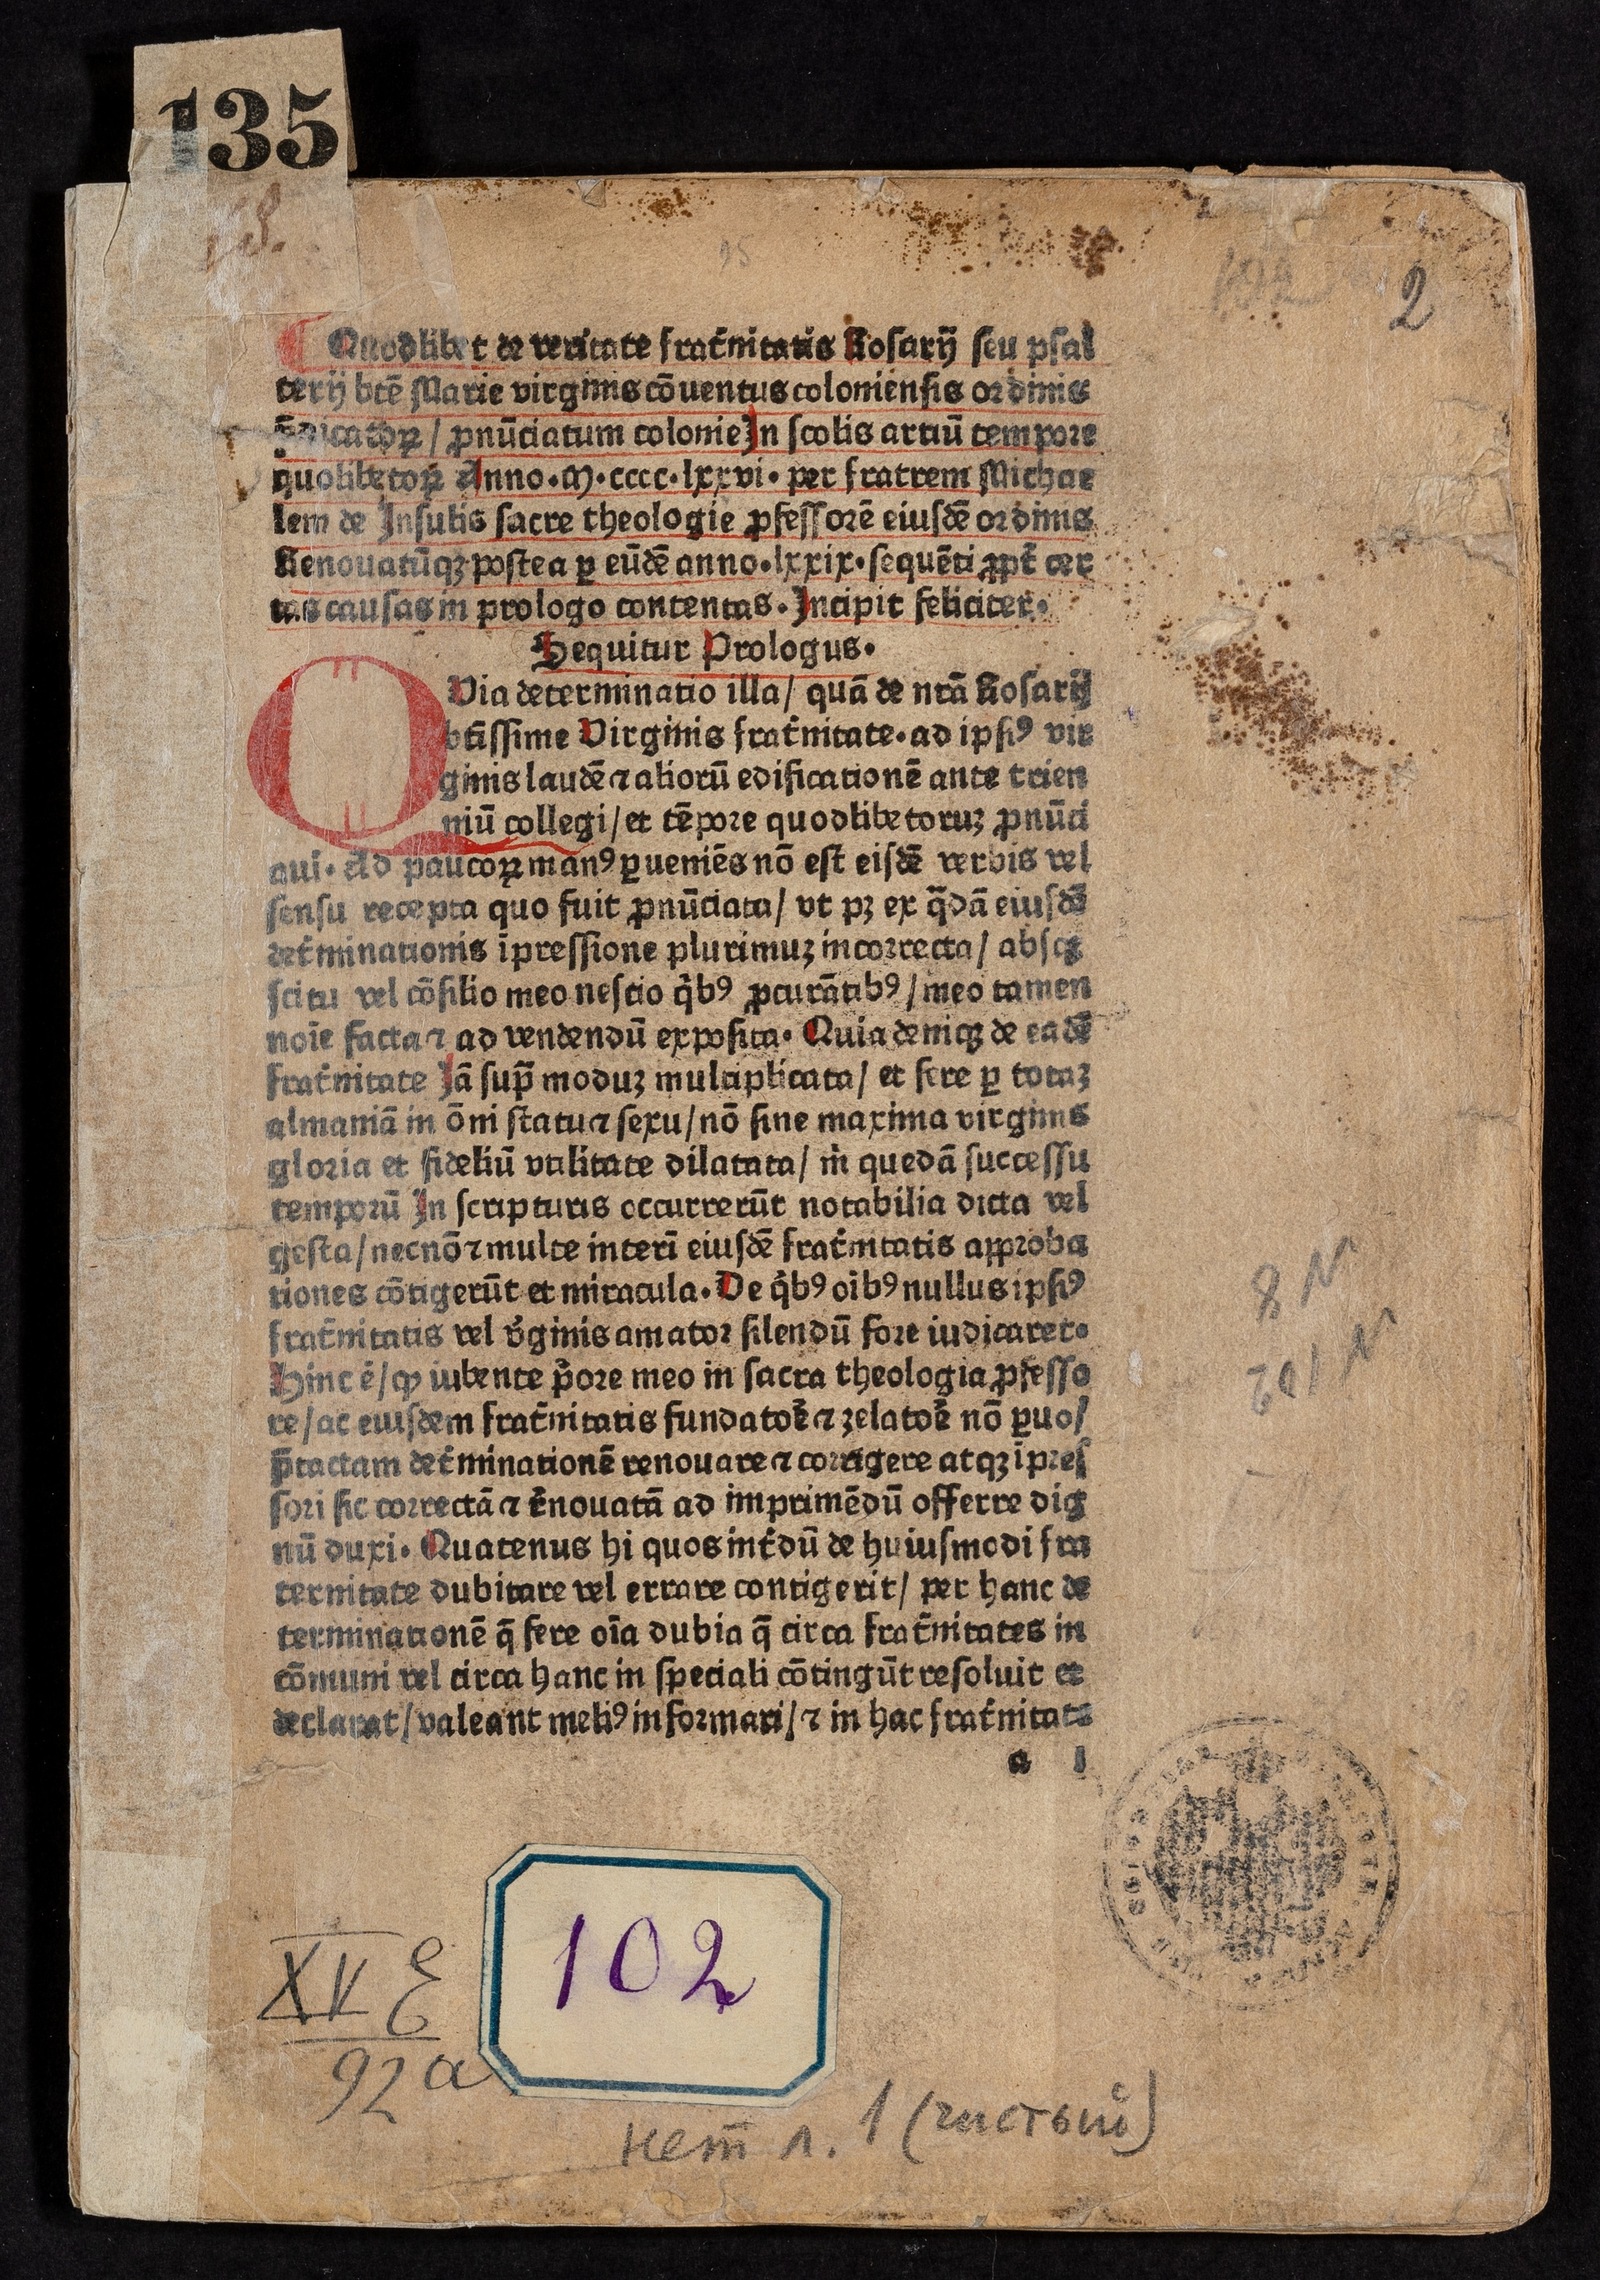 135
2
Quodlibet de veritate frat̄nitatis Rosarij seu psal
terij btē Marie virginis cōuentus coloniensis ordinis
p̄dicatoꝝ / ꝓnūciatum colonie In scolis artiū tempore
quolibetoꝝ Anno·M·cccc·lxxvi· per fratrem Michae
lem de Insulis sacre theologie ꝓfessorē eiusdē ordinis
Renouatūqꝫ postea ꝑ eūdē anno·lxxix·sequēti ꝓpt̄ cer
tas causas in prologo contentas· Incipit feliciter·
Sequitur Prologus·
QVia determinatio illa / quā de nrā Rosarij
btīssime Virginis frat̄nitate·ad ipsiꝰ vir
ginis laudē ⁊ aliorū edificationē ante trien
niū collegi / et tēpore quodlibetoruꝫ ꝓnūci
aui· Ad paucoꝝ manꝰ ꝑueniēs nō est eisdē verbis vel
sensu recepta quo fuit ꝓnūciata / vt pꝫ ex q̄dā eiusdē
det̄minationis īpressione plurimuꝫ incorrecta / absqꝫ
scitu vel cōsilio meo nescio q̇bꝰ ꝓcurātibꝰ / meo tamen
noīe facta ⁊ ad vendendū exposita· Quia deniqꝫ de eadē
frat̄nitate Jā sup̄ moduꝫ multiplicata / et fere ꝑ totaꝫ
almaniā in ōni statu ⁊ sexu / nō sine maxima virginis
gloria et fideliū vtilitate dilatata / m̄ quedā successu
temporū In scripturis occurrerūt notabilia dicta vel
gesta / necnō ⁊ multe interī eiusdē frat̄nitatis approba
tiones cōtigerūt et miracula· De q̇bꝰ oībꝰ nullus ipsiꝰ
frat̄nitatis vel v̄ginis amator silendū fore iudicaret·
Hinc ē / ꝙ iubente p̄ore meo in sacra theologia ꝓfesso
re / ac eiusdem frat̄nitatis fundatoē ⁊ zelatoē nō ꝑuo /
p̄tactam det̄minationē renouare ⁊ corrigere atqꝫ īpres
sori sic correctā ⁊ r̄nouatā ad imprimēdū offerre dig
nū duxi· Quatenus hi quos int̄dū de huiusmodi fra
ternitate dubitare vel errare contigerit / per hanc de
terminationē q̄ fere oīa dubia q̄ circa frat̄nitates in
cōmuni vel circa hanc in speciali cōtingūt resoluit et
declarat / valeant meliꝰ informari / ⁊ in hac frat̄nitate
a 1
XV E
92 a
102
нет л. 1 (чистый)